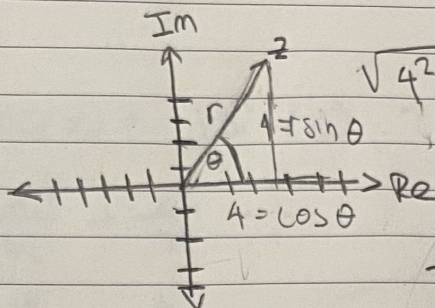 Im
z
√4²
r
4 = r sin θ
θ
Re
4 = cos θ